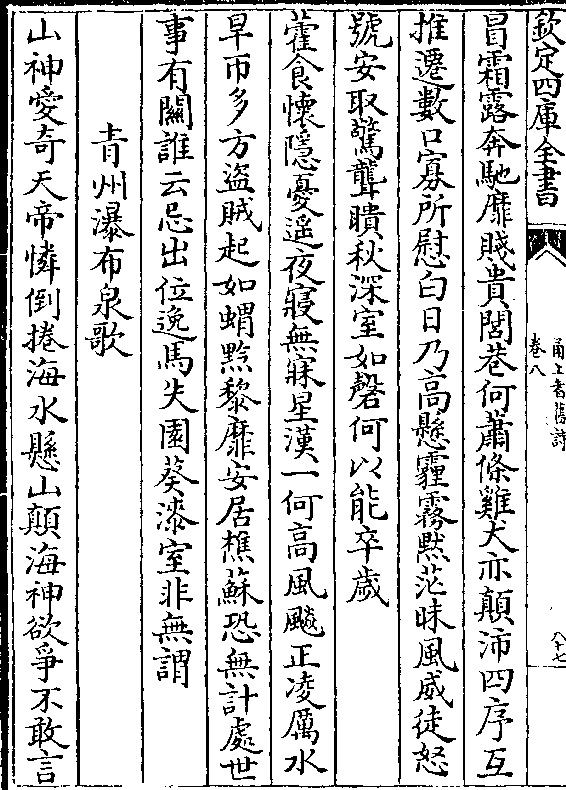 欽定四庫全書
甬上耆舊詩
卷八
八十七
冒霜露奔馳靡賤貴閭巷何蕭條雞犬亦顛沛四序互
推遷數口寡所慰白日乃高懸霾霧黙茫昧風威徒怒
號安取驚聾聵秋深室如磬何以能卒歲
藿食懷隱憂遥夜寢無寐星漢一何高風飈正凌厲水
旱帀多方盜賊起如蝟黔黎靡安居樵蘇恐無計處世
事有關誰云忌出位逸馬失園葵漆室非無謂
青州瀑布泉歌
山神愛奇天帝憐倒捲海水懸山顛海神欲爭不敢言